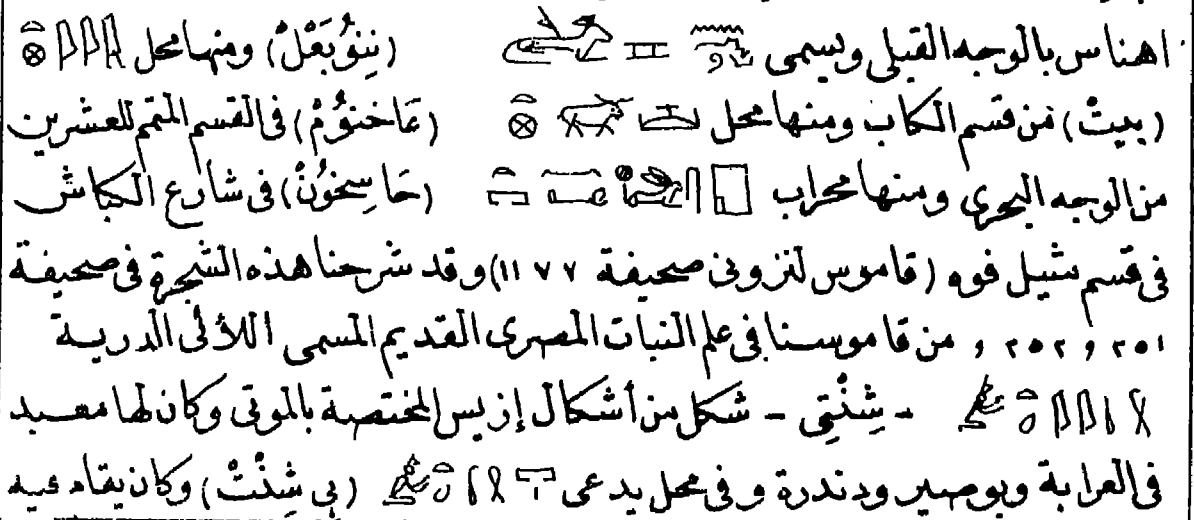 اهناس بالوجه القبلى ويسمى (نِنوُبَعْلْ) ومنها محل
(بيتْ) من قسم الكاب ومنها محل (عَاخنوُمْ) فى القسم المتمم للعشرين
من الوجه البحرى ومنها محراب (حَا سِخوُنْ) فى شارع الكباش
فى قسم شيل فوه (قاموس لنزونى صحيفة ١١٧٧) وقد شرحنا هذه الشجرة فى صحيفة
٢٥١ و ٢٥٢ و من قاموسنا فى علم النبات المصرى القديم المسمى اللآلئ الدرية
- شِنْتِى - شكل من أشكال إزيس المختصة بالموتى وكان لها معبد
فى العرابة وبوصير ودندرة وفى محل يدعى (بى شِنْتْ) وكان يقام فيه